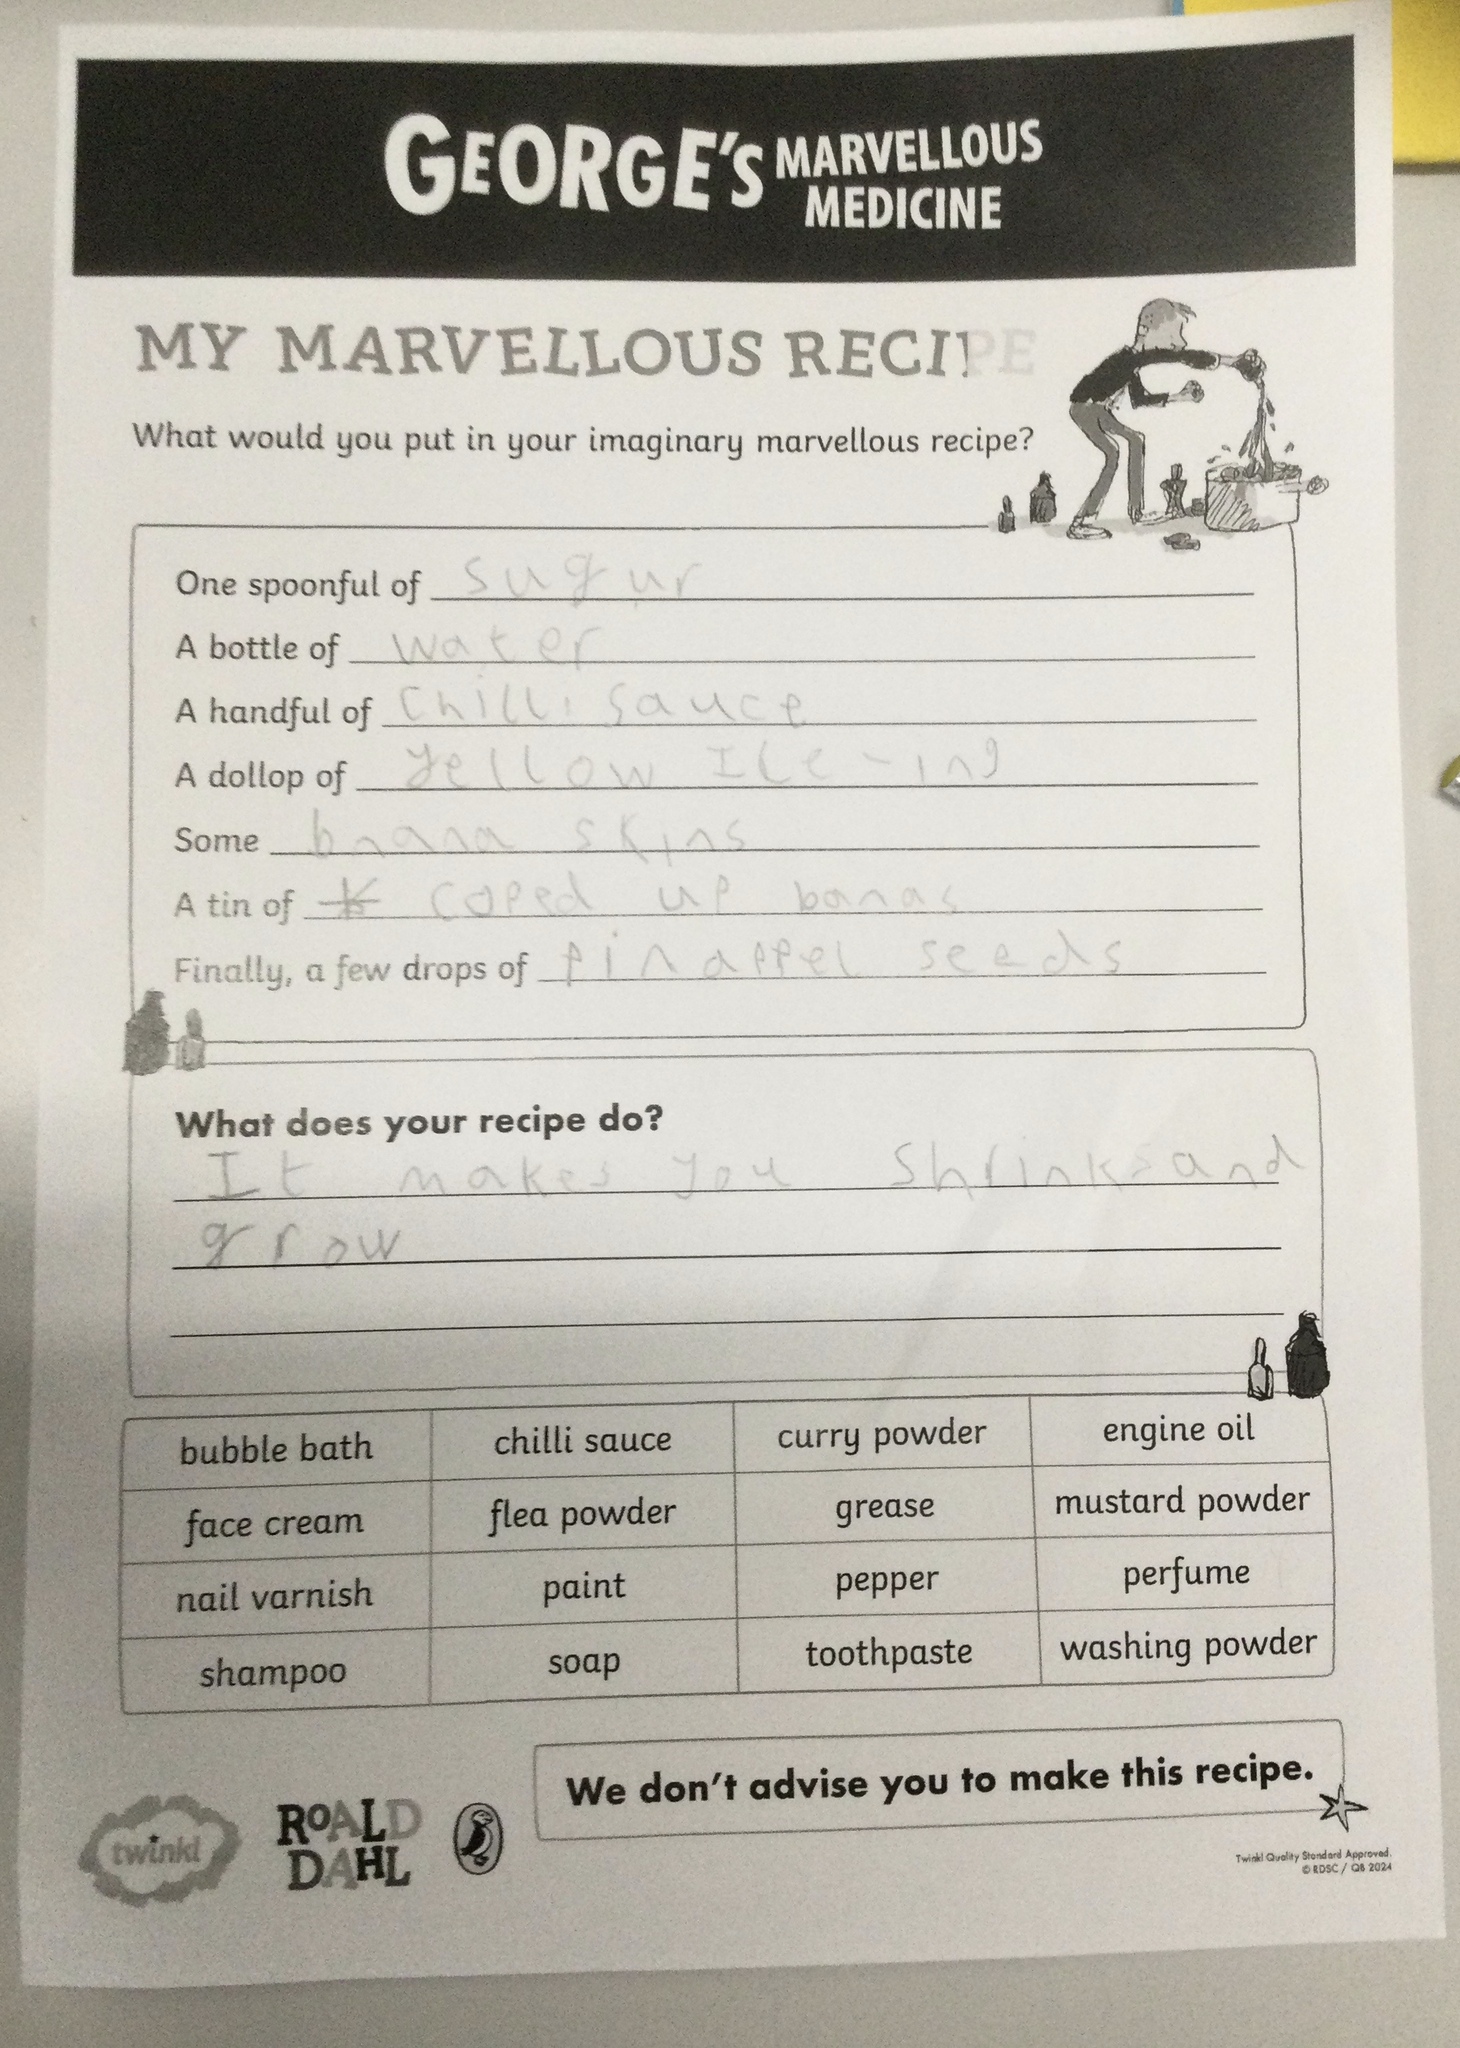 GEORGE'S MARVELLOUS
MEDICINE
MY MARVELLOUS RECIPE
What would you put in your imaginary marvellous recipe?
One spoonful of sugur
A bottle of water
A handful of chilli sauce
A dollop of yellow Ice-ing
Some bnana skins
A tin of coped up banas
Finally, a few drops of pinappel seeds
What does your recipe do?
It makes you shrink and
grow
bubble bath chilli sauce curry powder engine oil
face cream flea powder grease mustard powder
nail varnish paint pepper perfume
shampoo soap toothpaste washing powder
We don't advise you to make this recipe.
twinkl
ROALD
DAHL
Twinkl Quality Standard Approved.
© RDSC / QB 2024